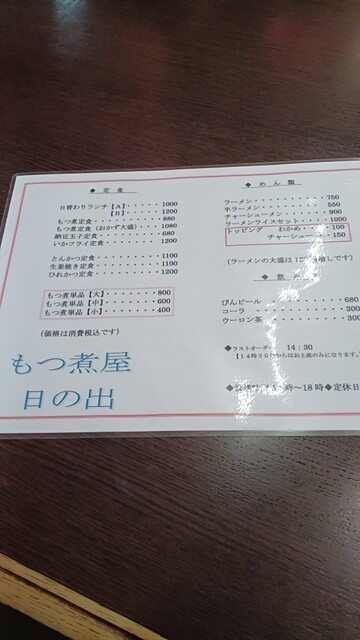 ◆ 定 食
日替わりランチ【A】・・・・・1000
【B】・・・・・1200
もつ煮定食・・・・・・・・・880
もつ煮定食(おかず大盛)・・・1080
納豆玉子定食・・・・・・・・680
いかフライ定食・・・・・・・1200
とんかつ定食・・・・・・・・1100
生姜焼き定食・・・・・・・・1100
ひれかつ定食・・・・・・・・1200
もつ煮単品【大】・・・・・・800
もつ煮単品【中】・・・・・・600
もつ煮単品【小】・・・・・・400
(価格は消費税込です)
もつ煮屋
日の出
◆ め ん 類
ラーメン・・・・・・・・・・750
半ラーメン・・・・・・・・・550
チャーシューメン・・・・・・900
ラーメンライスセット・・・・1000
トッピング わかめ・・・・100
チャーシュー・・・・150
(ラーメンの大盛は 12 増しです)
◆ 飲
びんビール・・・・・・・・・680
コーラ・・・・・・・・・・・300
ウーロン茶・・・・・・・・・300
◆ラストオーダー 14:30
【14時30 からはお土産のみになります。
時～18時◆定休日